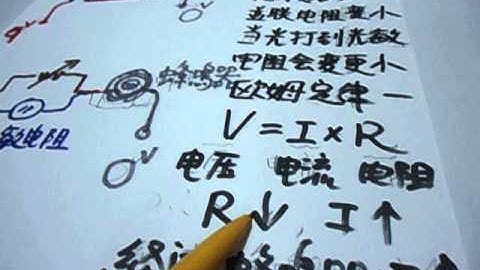 并联电阻变小
当光打到光敏
电阻会变更小
蜂鸣器
欧姆定律一
V=I×R
敏电阻
电压 电流 电阻
R↓ I↑